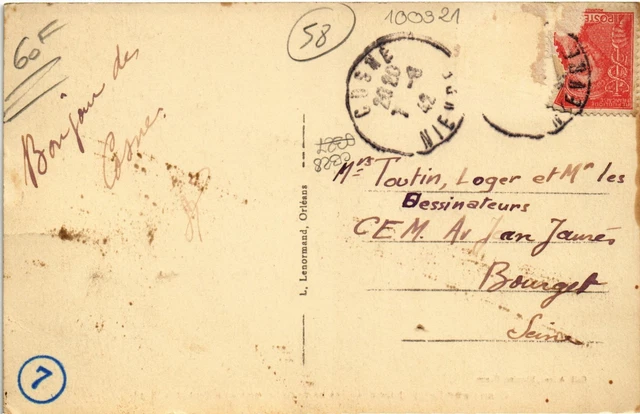 60F
58
100921
COSNE
20 20
1 -8
42
NIEVRE
POSTES
NIEVRE
Bonjour de
Cosne.
0228
Mrs Toutin, Loger et Mr les
Dessinateurs
C.E.M. Av Jean Jaurès
Bourget
Seine
L. Lenormand, Orléans
7